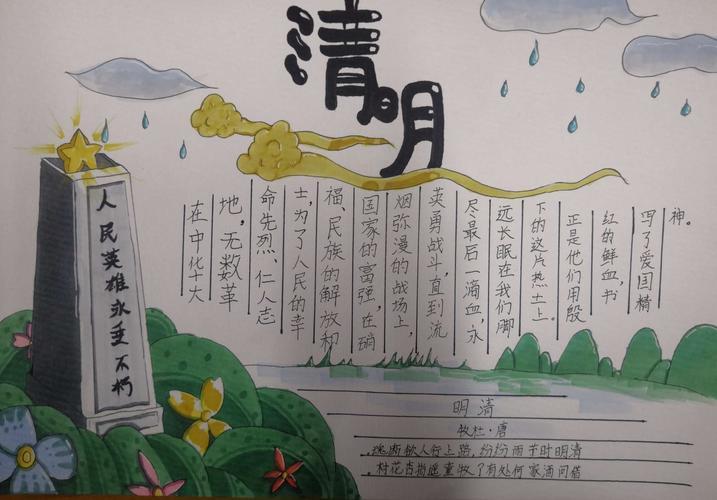 清明
人民英雄永垂不朽
在中化十大
地,无数革
命先烈、仁人志
士,为了人民的幸
福、民族的解放和
国家的富强,在硝
烟弥漫的战场上,
英勇战斗,直到流
尽最后一滴血,永
远长眠在我们脚
下的这片热土上。
正是他们用殷
红的鲜血,书
写了爱国精
神。
明清
牧杜·唐
断欲人行上路,纷纷雨时明清
村花杏指遥童牧了有处何家酒问借